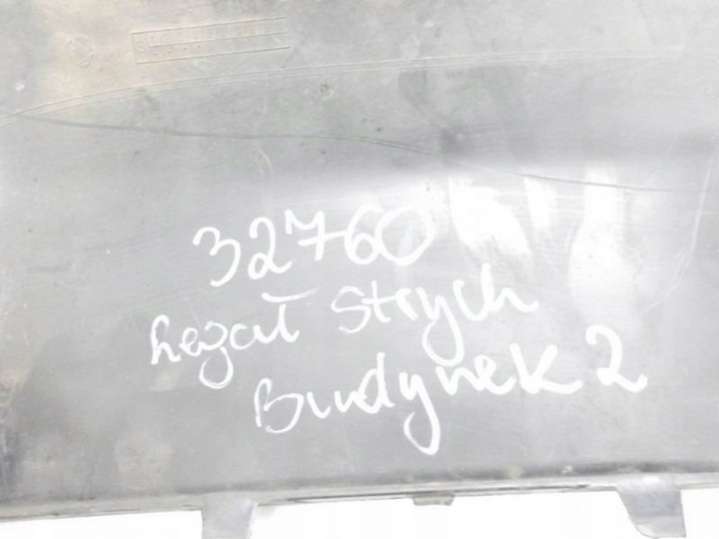 32760
Regał Strych
Budynek 2